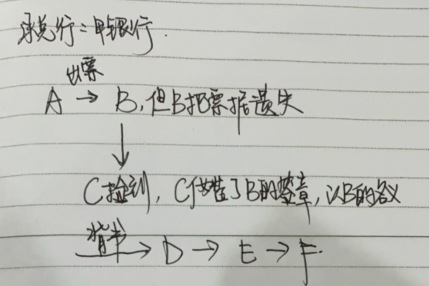 承兑行：甲银行.
出票
A → B，但B把票据遗失
↓
C捡到，C伪造了B的签章，以B的名义
背书 → D → E → F.